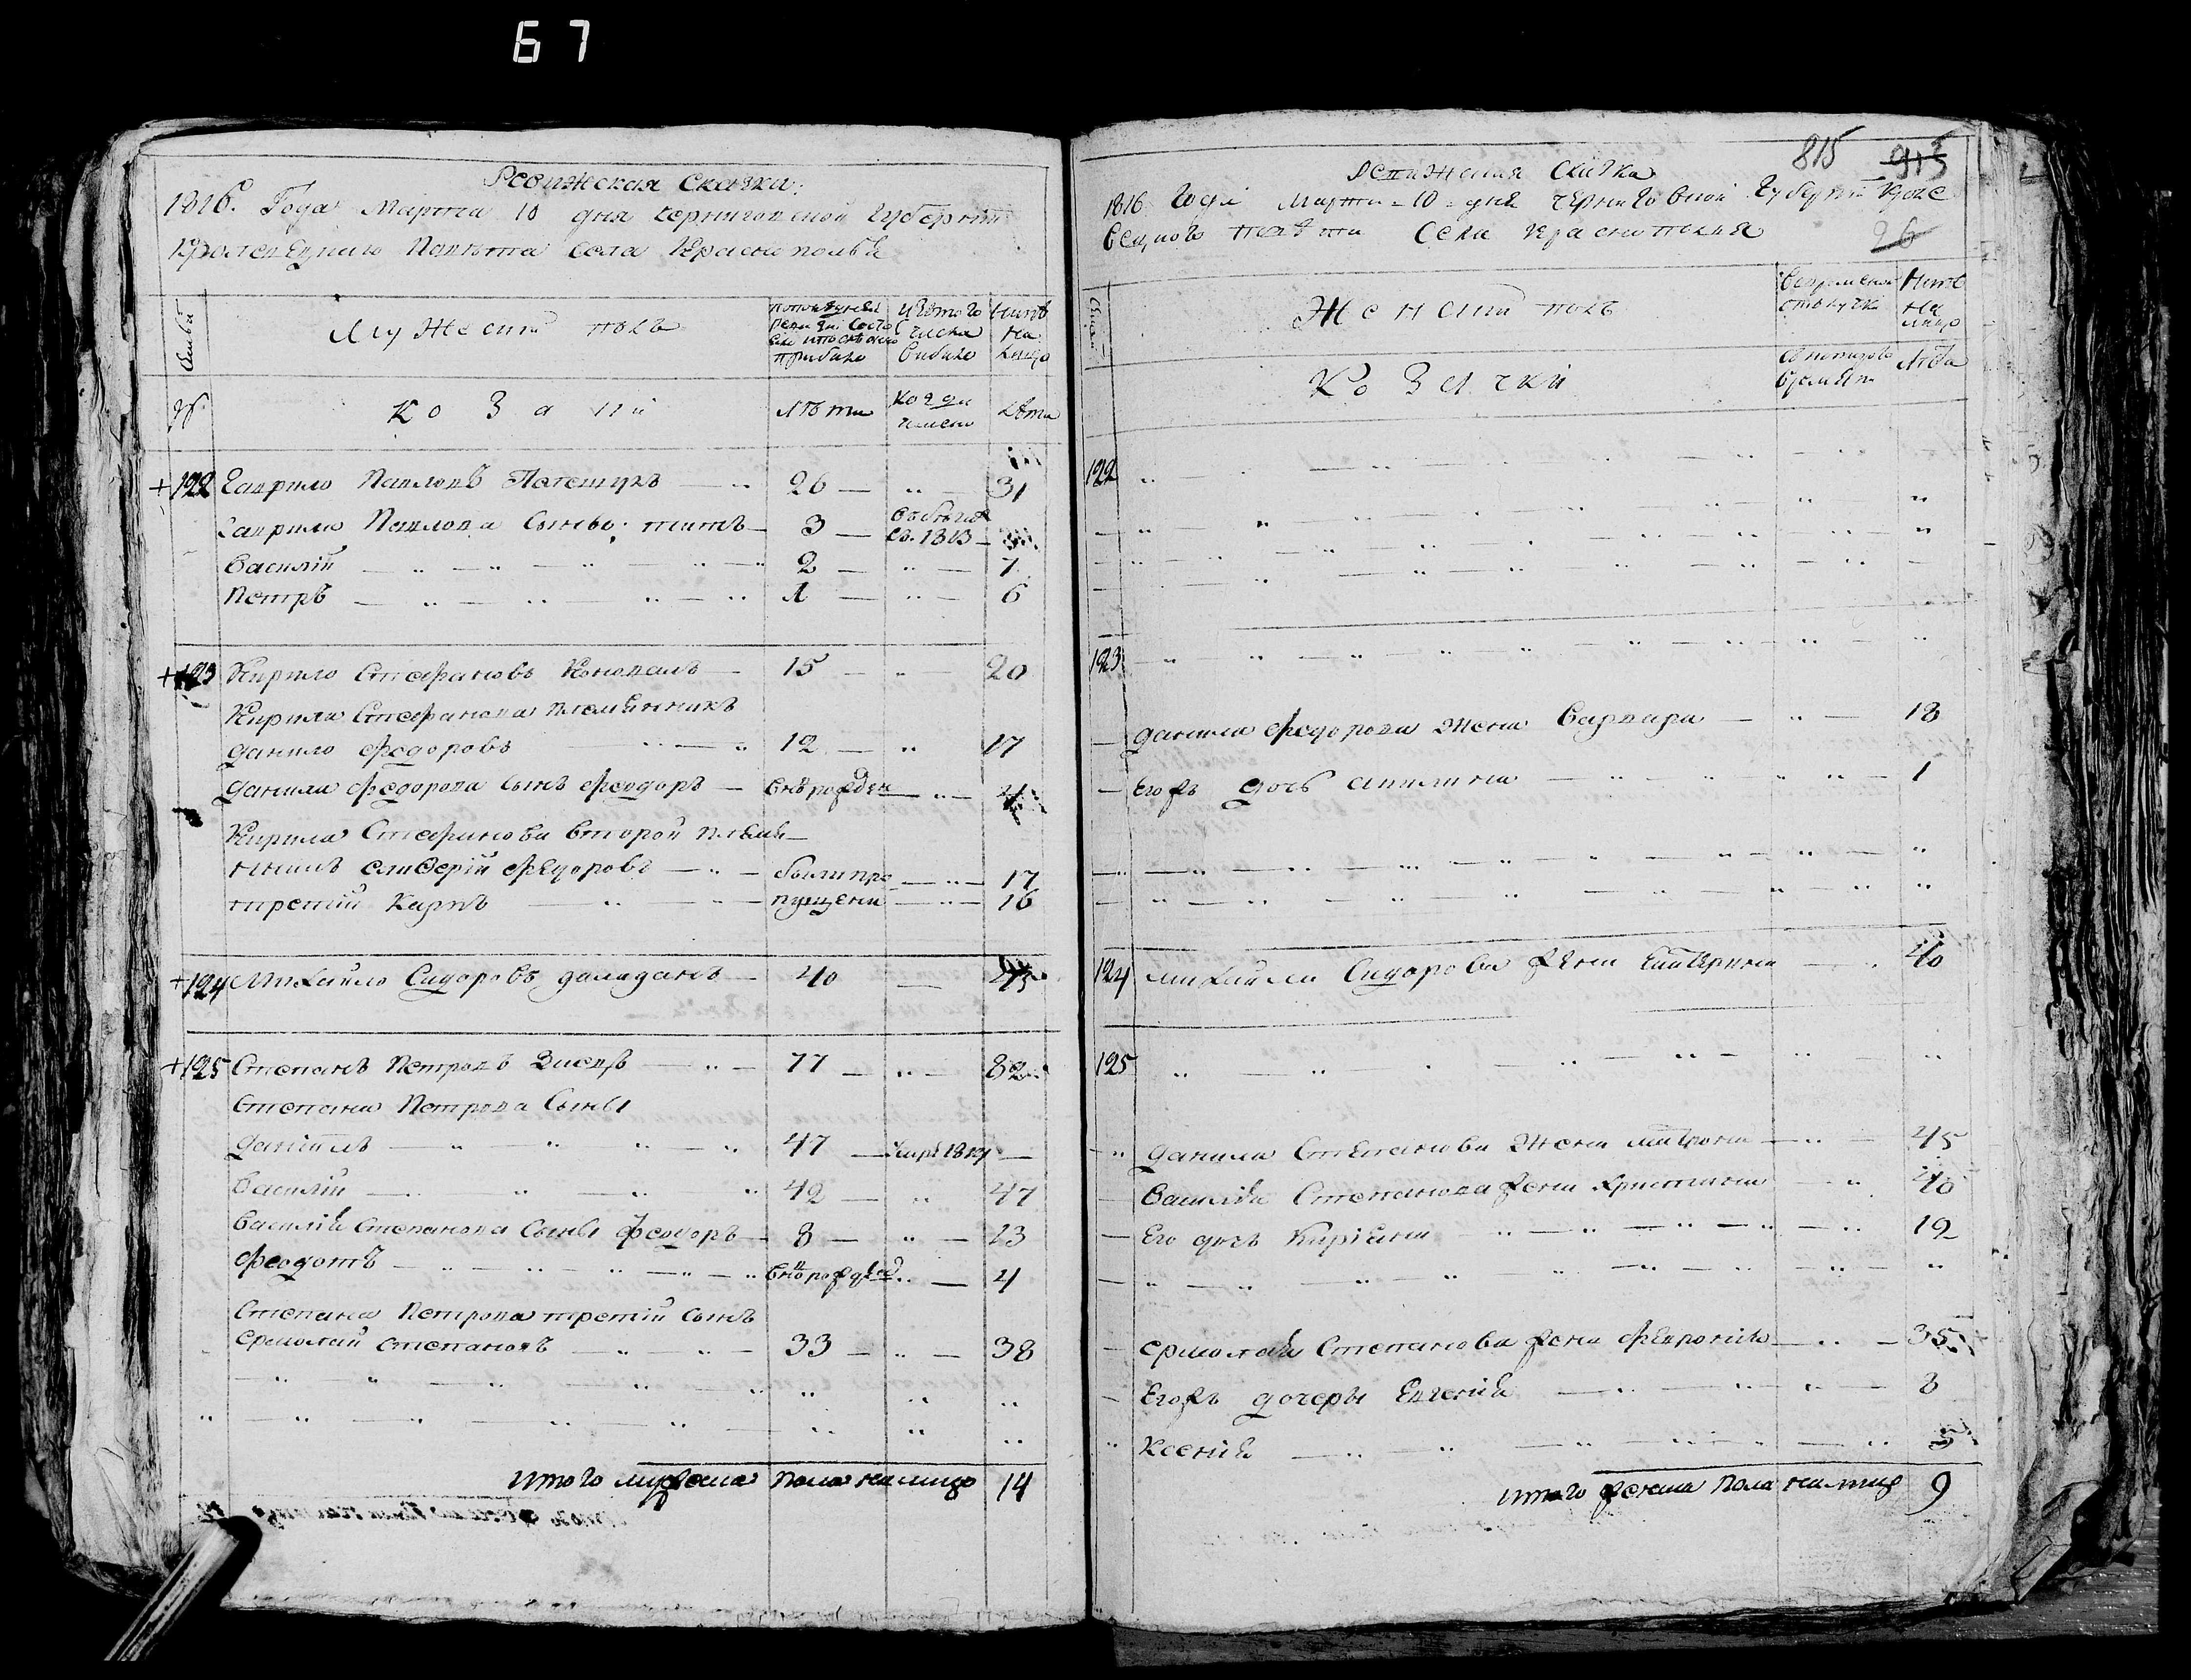 67
Ревижская Сказка.
1816. Года Марта 10 дня Черниговской Губернии
Кролевецкаго Повѣта Села Краснополья
Семьи
Мужеский полъ
по последней ревизіи состояло и после оной прибыло
изъ того числа выбыло
Нынѣ на лицо
№
Козаки
лѣта
когда именно
Лѣта
+122 Гаврило Павловъ 26 31
Гаврила Павлова Сынъ: титъ 3 въ бѣгахъ съ 1813
Василій 2 7
Петръ 1 6
+123 Кирило Стефановъ Коновалъ 15 20
Кирила Стефанова племянникъ
Данило Федоровъ 12 17
Данила Федорова сынъ Феодоръ вновьрожден 4
Кирила Стефанова второй племя-
никъ Елиферій Федоровъ были про 17
третій Карпъ пущени 16
+124 Михайло Сидоровъ 40 45
+125 Степанъ Петровъ Заецъ 77 82
Степана Петрова Сынъ
Даніилъ 47 умре 1814
Василій 42 47
Василія Степанова Сынъ Феодоръ 8 13
Феодотъ вноворожден 4
Степана Петрова третій Сынъ
Ермолай Степановъ 33 38
Итого мужеска пола налицо 14
815 915
Ревижская Сказка
1816 Года Марта 10 дня Черниговской Губерніи Кроле
вецкого повѣта Села Краснополья
26
Семьи
Женский полъ
Нинѣ на лицо
Козачки
Лѣта
122
123
Данила Федорова жена Варвара 18
Егожъ дочь Акилина 1
124 Михаила Сидорова жена Екатерина 40
125
Данила Степанова жена Матрона 45
Василія Степанова жена Христина 40
Его дочь 12
Ермолая Степанова жена Февронія 35
Егожъ дочеры Евгенія 8
Ксенія 5
Итого женска пола налицо 9